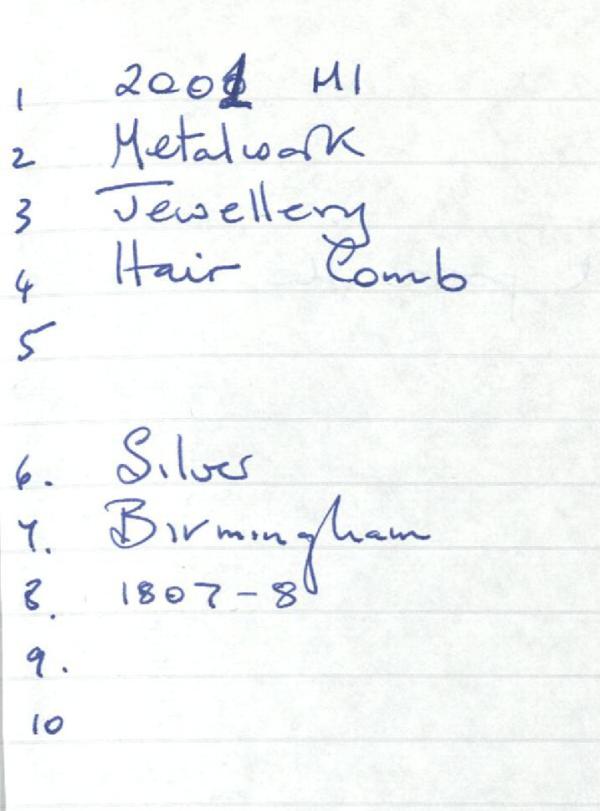 1 2001 M1
2 Metalwork
3 Jewellery
4 Hair Comb
5
6. Silver
7. Birmingham
8. 1807-8
9.
10